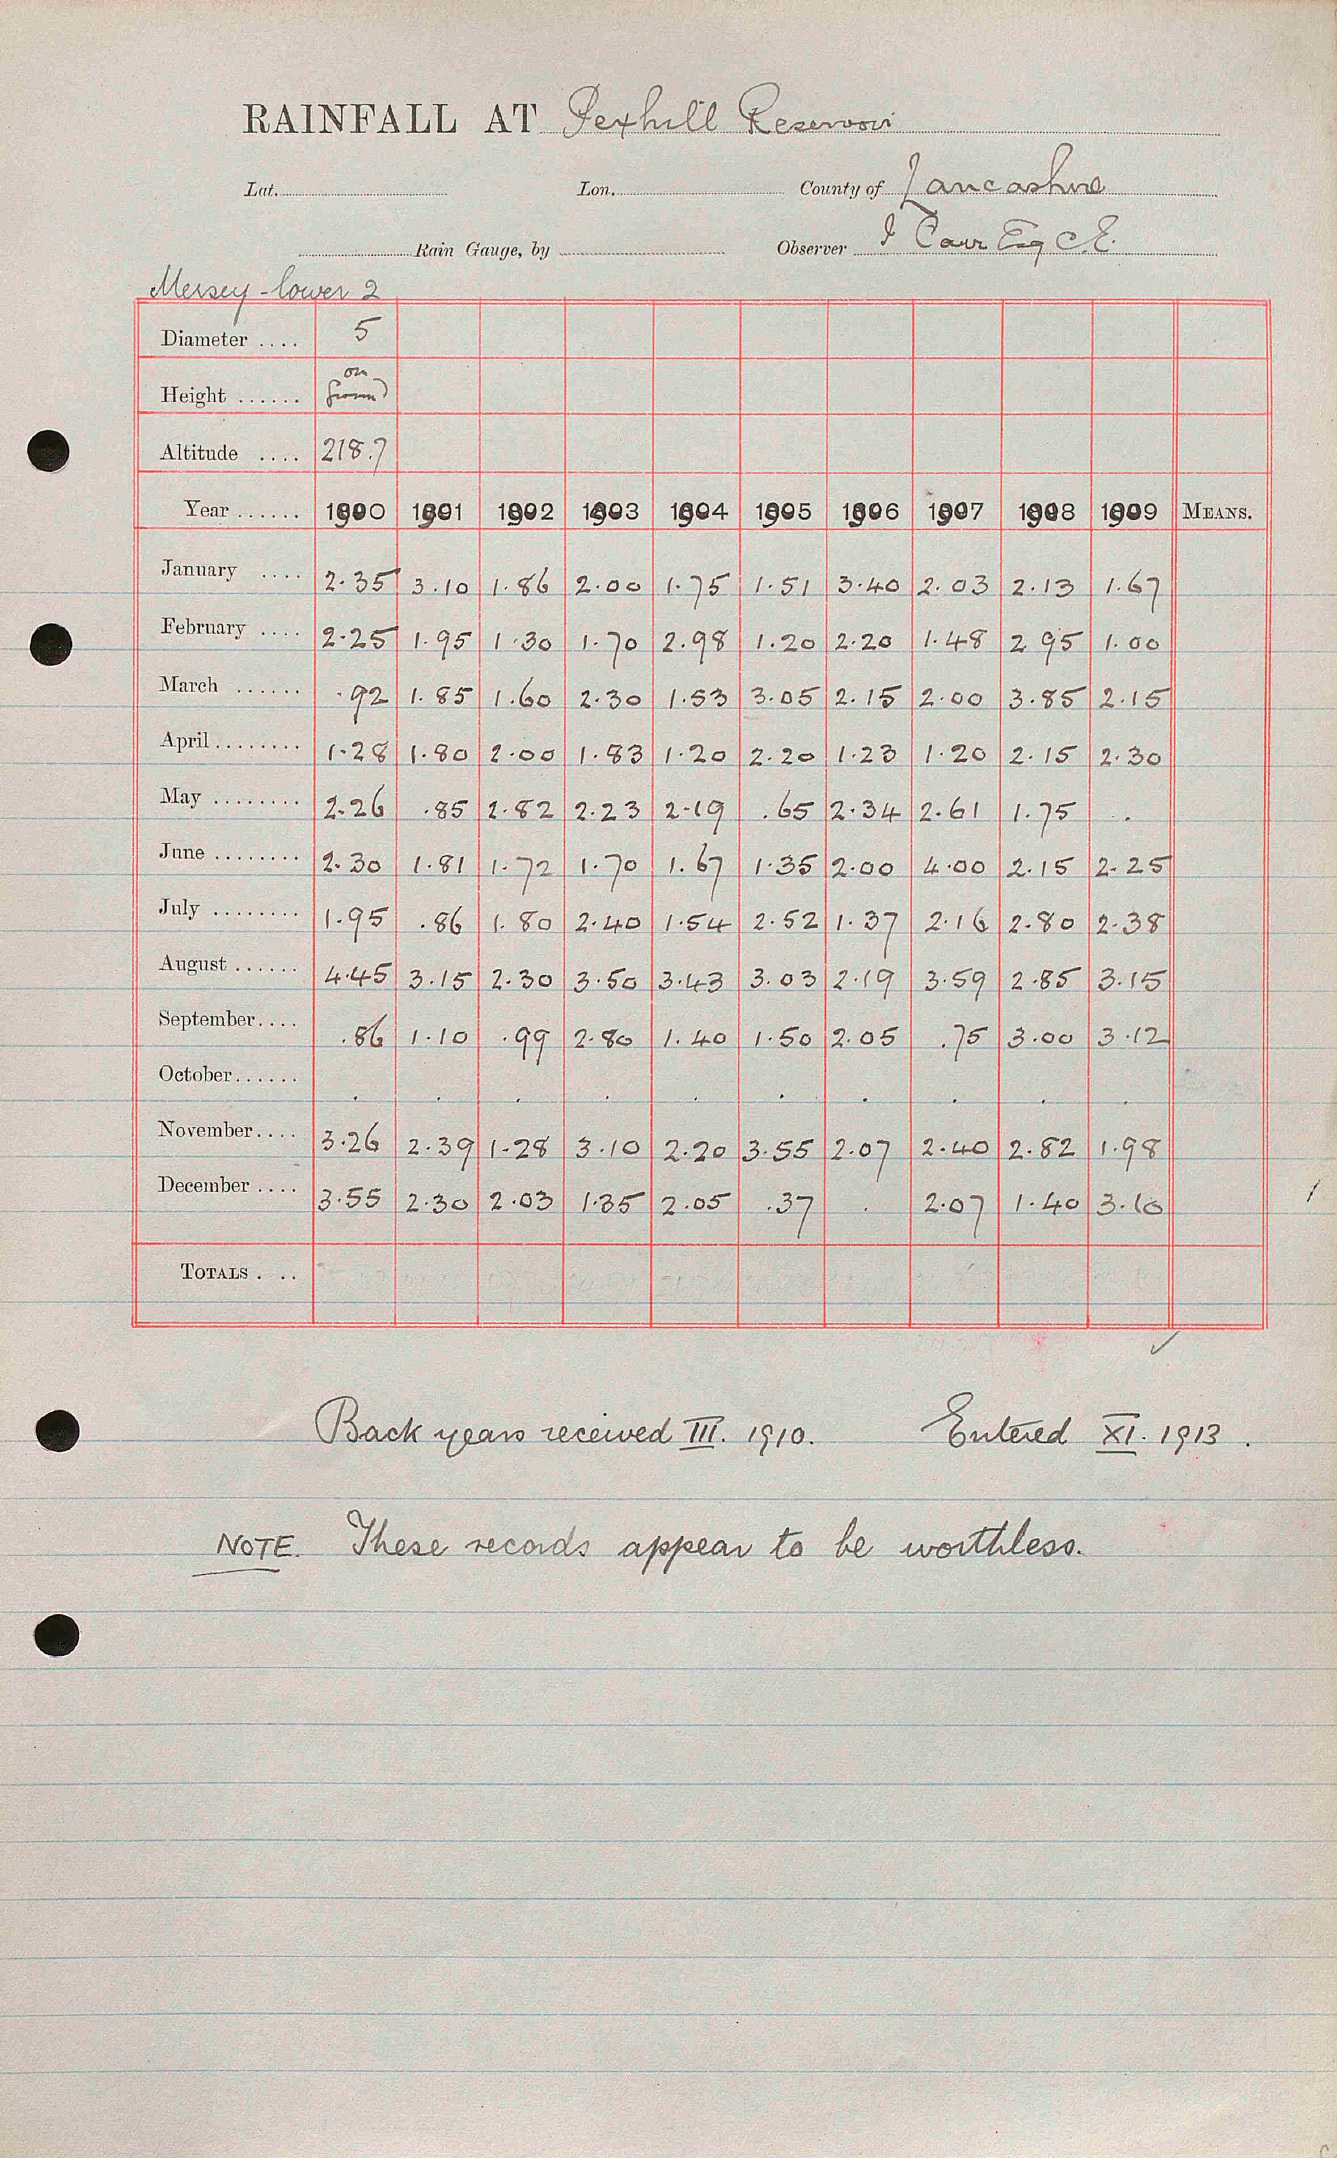 RAINFALL AT Pexhill Reservoir
Lat. Lon. County of Lancashire
Rain Gauge, by Observer J Carr Esq C.E.
Mersey - lower 2
Diameter .... 5
Height ...... on ground
Altitude .... 218.7
Year ...... 1900 1901 1902 1903 1904 1905 1906 1907 1908 1909 MEANS.
January .... 2.35 3.10 1.86 2.00 1.75 1.51 3.40 2.03 2.13 1.67
February .... 2.25 1.95 1.30 1.70 2.98 1.20 2.20 1.48 2.95 1.00
March ...... .92 1.85 1.60 2.30 1.53 3.05 2.15 2.00 3.85 2.15
April ........ 1.28 1.80 2.00 1.83 1.20 2.20 1.23 1.20 2.15 2.30
May ........ 2.26 .85 2.82 2.23 2.19 .65 2.34 2.61 1.75 .
June ........ 2.30 1.81 1.72 1.70 1.67 1.35 2.00 4.00 2.15 2.25
July ........ 1.95 .86 1.80 2.40 1.54 2.52 1.37 2.16 2.80 2.38
August ...... 4.45 3.15 2.30 3.50 3.43 3.03 2.19 3.59 2.85 3.15
September .... .86 1.10 .99 2.80 1.40 1.50 2.05 .75 3.00 3.12
October ...... . . . . . . . . . .
November .... 3.26 2.39 1.28 3.10 2.20 3.55 2.07 2.40 2.82 1.98
December .... 3.55 2.30 2.03 1.35 2.05 .37 . 2.07 1.40 3.10
TOTALS . ..
Back years received III. 1910. Entered XI. 1913.
NOTE. These records appear to be worthless.